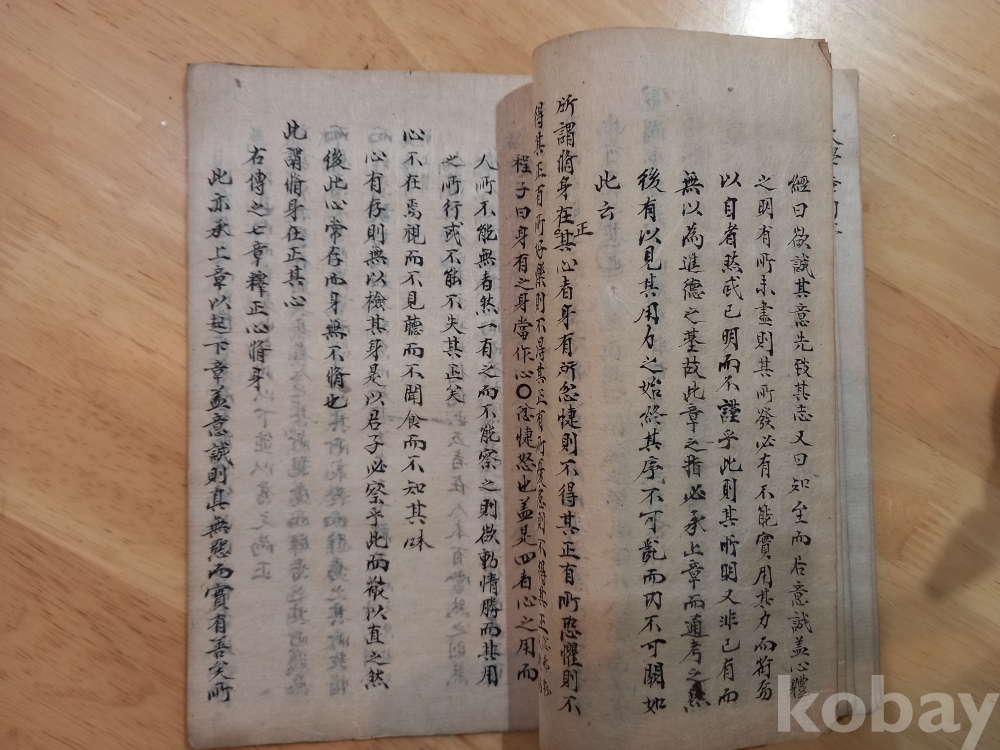 經曰欲誠其意先致其志又曰知至而后意誠盖心體
之明有所未盡則其所發必有不能實用其力而苟焉
以自者然或已明而不謹乎此則其所明又非已有而
無以為進德之基故此章之指必承上章而通考之然
後有以見其用力之始終其序不可亂而功不可闕如
此云
所謂脩身在正其心者身有所忿懥則不得其正有所恐懼則不
得其正有所好樂則不得其正有所憂患則不得其正
程子曰身有之身當作心〇忿懥怒也盖是四者心之用而
人所不能無者然一有之而不能察之則欲動情勝而其用
之所行或不能不失其正矣
心不在焉視而不見聽而不聞食而不知其味
心有存則無以檢其身是以君子必察乎此而敬以直之然
後此心常存而身無不脩也
此謂脩身在正其心
右傳之七章釋正心脩身
此亦承上章以起下章盖意誠則真無惡而實有善矣所
kobay